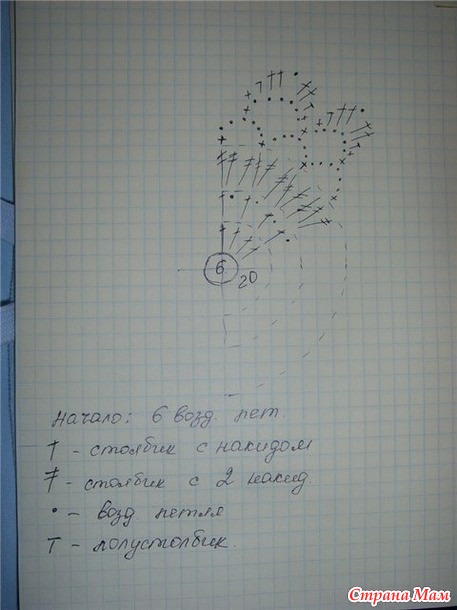 6
20
Начало: 6 возд. пет.
† - столбик с накидом
‡ - столбик с 2 накид.
• - возд петля
т - полустолбик.
Страна Мам